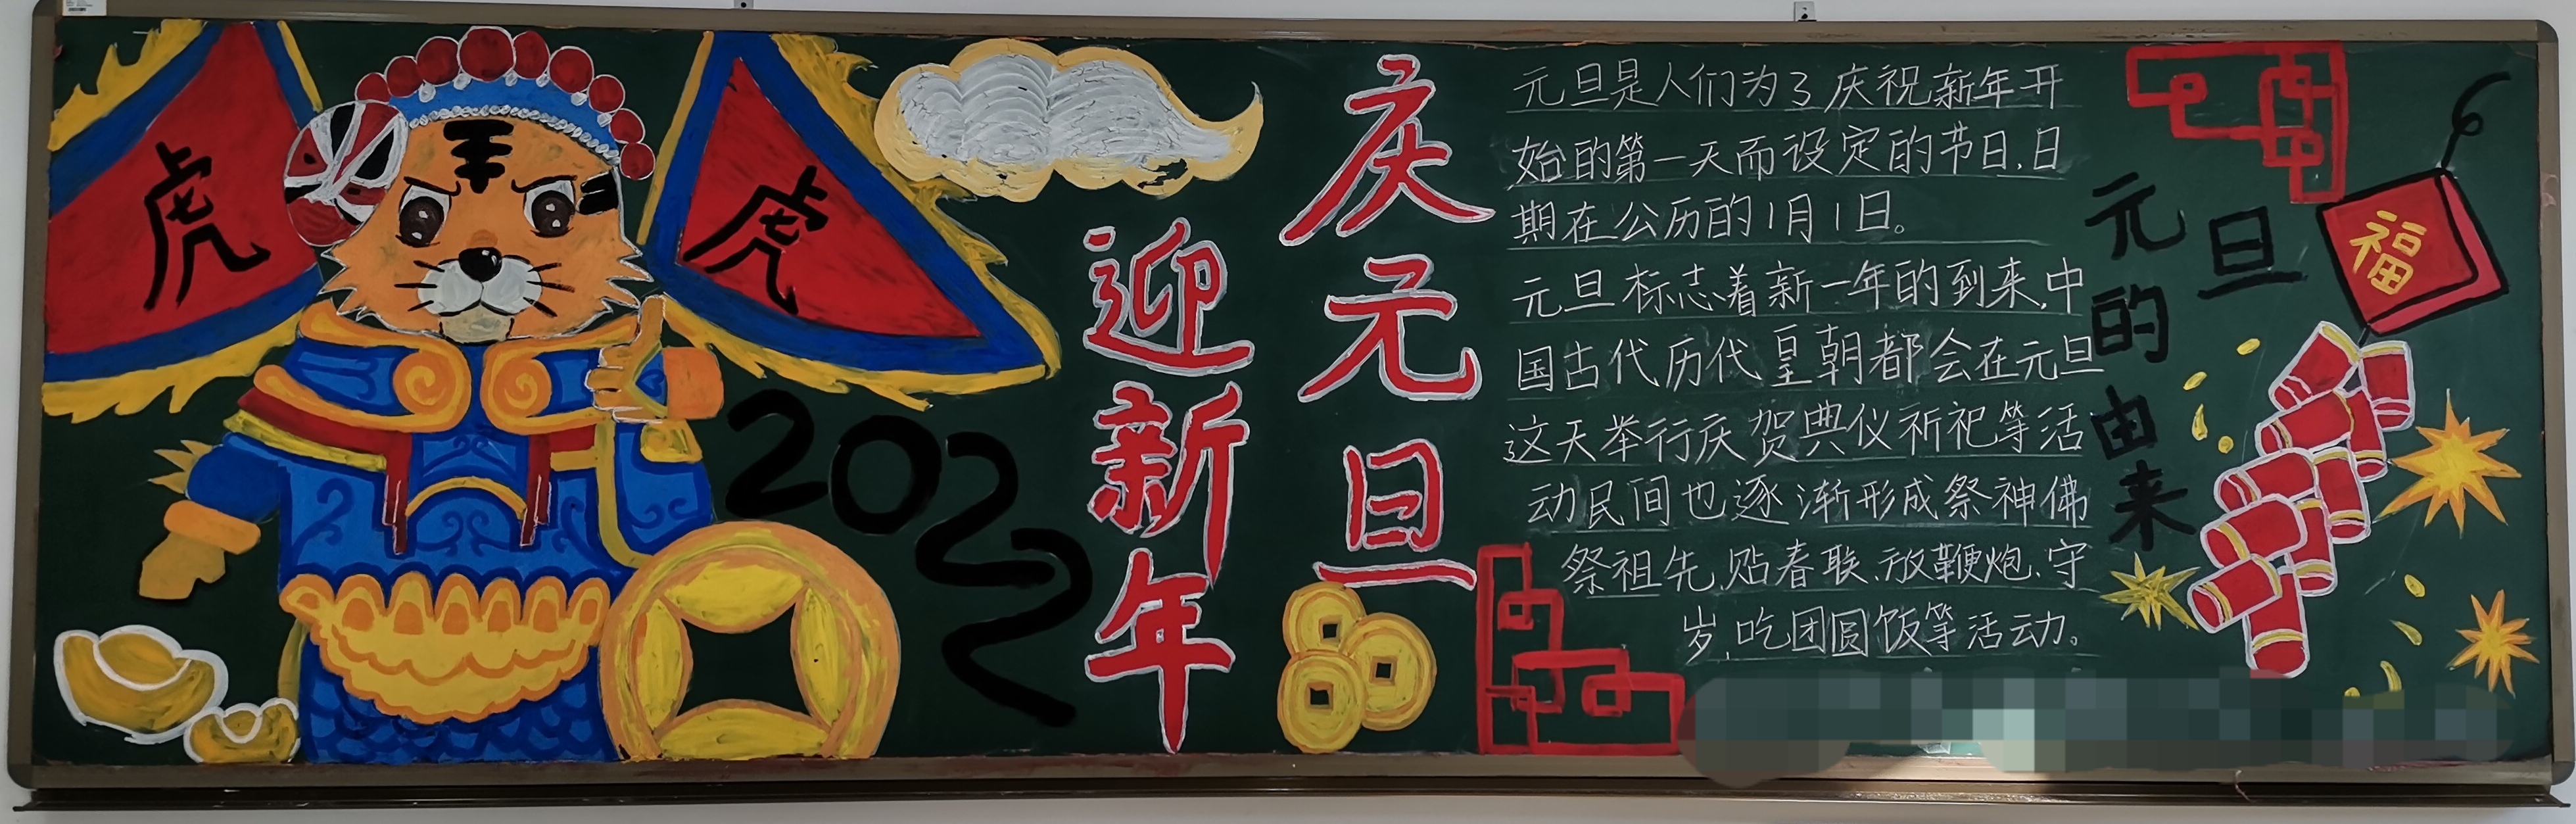 虎
虎
2022
庆元旦
迎新年
元旦是人们为了庆祝新年开
始的第一天而设定的节日,日
期在公历的1月1日。
元旦标志着新一年的到来,中
国古代历代皇朝都会在元旦
这天举行庆贺典仪祈祀等活
动民间也逐渐形成祭神佛
祭祖先,贴春联、放鞭炮、守
岁,吃团圆饭等活动。
元旦
的由来
福